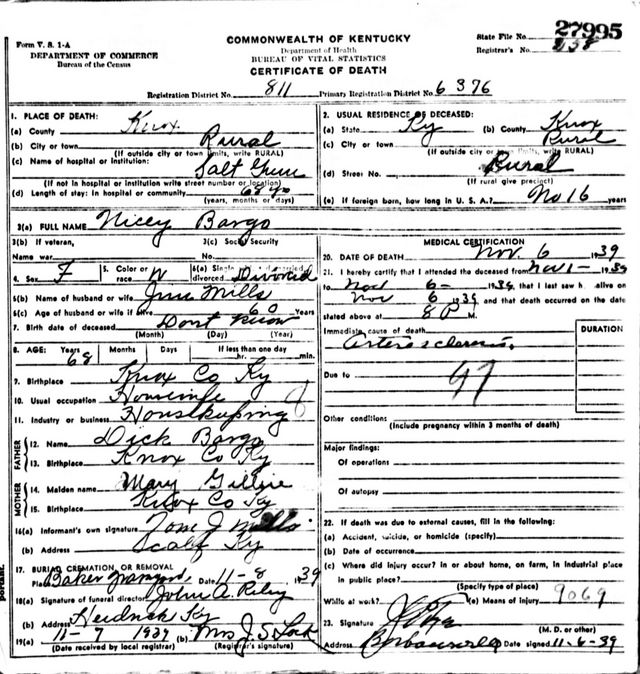 Form V. S. 1-A
DEPARTMENT OF COMMERCE
Bureau of the Census
COMMONWEALTH OF KENTUCKY
Department of Health
BUREAU OF VITAL STATISTICS
CERTIFICATE OF DEATH
State File No. 27995
Registrar's No.
Registration District No. 811 Primary Registration District No. 6376
1. PLACE OF DEATH:
(a) County Knox
(b) City or town Rural
(If outside city or town limits, write RURAL)
(c) Name of hospital or institution:
Salt
(If not in hospital or institution write street number or location)
(d) Length of stay: In hospital or community 68 yrs
(years, months or days)
2. USUAL RESIDENCE OF DECEASED:
(a) State Ky (b) County Knox
(c) City or town Rural
(If outside city or town limits, write RURAL)
(d) Street No. Rural
(If rural give precinct)
(e) If foreign born, how long in U. S. A.? No 16 years
3(a) FULL NAME Nicey Bargo
3(b) If veteran,
Name war
3(c) Social Security
No.
4. Sex F 5. Color or race W 6(a) Single, married, divorced Divorced
6(b) Name of husband or wife Mills
6(c) Age of husband or wife if alive 60 Years
7. Birth date of deceased Dont Know
(Month) (Day) (Year)
8. AGE: Years 68 Months Days If less than one day
hr. min.
9. Birthplace Knox Co Ky
10. Usual occupation Housewife
11. Industry or business Housekeeping
FATHER
12. Name Dick Bargo
13. Birthplace Knox Co Ky
MOTHER
14. Maiden name Mary
15. Birthplace Knox Co Ky
16(a) Informant's own signature J Mills
(b) Address Scalf Ky
17. BURIAL, CREMATION, OR REMOVAL
Place Baker Date 11-8 1939
18(a) Signature of funeral director John A. Riley
(b) Address Heidrick Ky
19(a) 11-7 1939 (b) Mrs J. S. Lock
(Date received by local registrar) (Registrar's signature)
MEDICAL CERTIFICATION
20. DATE OF DEATH Nov. 6 1939
21. I hereby certify that I attended the deceased from Nov 1- 1939
to Nov 6- 1939 that I last saw h alive on
Nov 6 1939 and that death occurred on the date
stated above at 8 P M.
Immediate cause of death
Arterosclerosis.
DURATION
Due to 97
Other conditions
(Include pregnancy within 3 months of death)
Major findings:
Of operations
Of autopsy
22. If death was due to external causes, fill in the following:
(a) Accident, suicide, or homicide (specify)
(b) Date of occurrence
(c) Where did injury occur? in or about home, on farm, in industrial place
in public place?
(Specify type of place)
While at work? (e) Means of injury 9069
23. Signature
(M. D. or other)
Address Barbourville Date signed 11-6-39